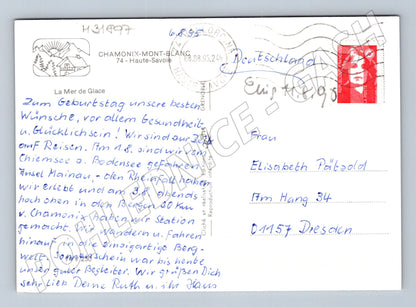 H31997
6.8.95
CHAMONIX-MONT-BLANC
74 - Haute-Savoie
Deutschland
La Mer de Glace
Zum Geburtstag unsere besten
Wünsche, vor allem Gesundheit
u. Glücklichsein! Wir sind zur Zeit
auf Reisen. Am 1.8. sind wir von
Chiemsee z. Bodensee gefahren,
Insel Mainau, den Rheinfall haben
wir erlebt und am 3.8. abends
hoch oben in den Bergen 20 km
v. Chamonix haben wir Station
gemacht. Wir wandern u. fahren
hinauf in die einzigartige Berg-
welt. Sonnenschein war bis heute
unser guter Begleiter. Wir grüßen Dich
sehr lieb Deine Ruth u. ihr Hans
Frau
Elisabeth Pätzold
Am Hang 34
01157 Dresden
POHLEDNICE-CACH